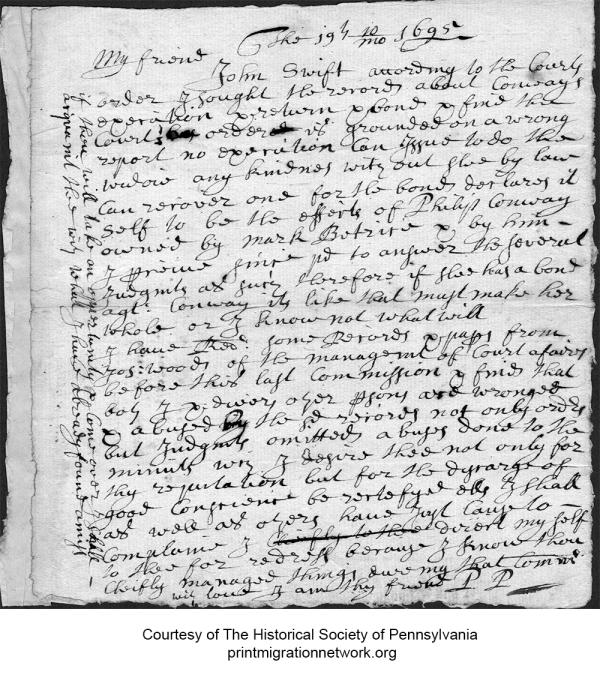 The 19th 10 mo 1695
My friend
John Swift according to the Courts
order I sought the records about Conway's
execution & return & bond & find the
Court ordered is grounded on a wrong
report no execution can issue to do the
widow any kindnes without she by law
Can recover one for the bond declares it
self to be the effects of Philip Conway
owned by mark Betrice & by him
since pd to answer the severall
Judgmts as such therefore if she has a bond
agt: Conway its like that must make her
whole or I know not what will
I have some Records & paps from
Jos: woods of the managemt of Court afaires
before this last Commission & find that
both I & divers other psons are wronged
& abused by the sd records not only orders
but Judgmts omitted & abuses done to the
minuts wch I desire thee not only for
thy reputation but for the dyscarge of
good Conscience be rectefyed els I shall
as well as others have Just Cause to
Complaine I Cheifly to thee direct my self
to thee for redress because I know thou
Cheifly managed things dureing that Comn
with love I am thy friend P P
if thou will take an oppertunity to Come over I shall
aquaint thee with what I have already found amiss
Courtesy of The Historical Society of Pennsylvania
printmigrationnetwork.org